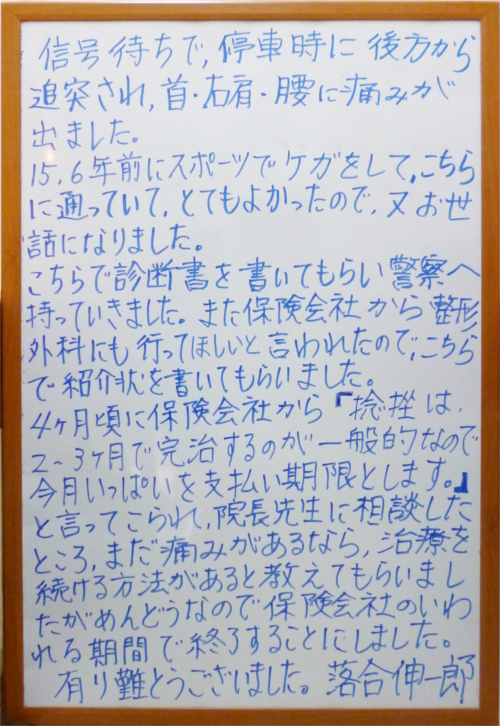 信号待ちで,停車時に後方から
追突され,首・右肩・腰に痛みが
出ました。
15,6年前にスポーツでケガをして,こちら
に通っていて,とてもよかったので,又お世
話になりました。
こちらで診断書を書いてもらい警察へ
持っていきました。また保険会社から整形
外科にも行ってほしいと言われたので,こちら
で紹介状を書いてもらいました。
4ヶ月頃に保険会社から『捻挫は,
2~3ヶ月で完治するのが一般的なので
今月いっぱいを支払い期限とします。』
と言ってこられ,院長先生に相談した
ところ,まだ痛みがあるなら,治療を
続ける方法があると教えてもらいまし
たがめんどうなので保険会社のいわ
れる期間で終了することにしました。
有り難とうございました。落合伸一郎